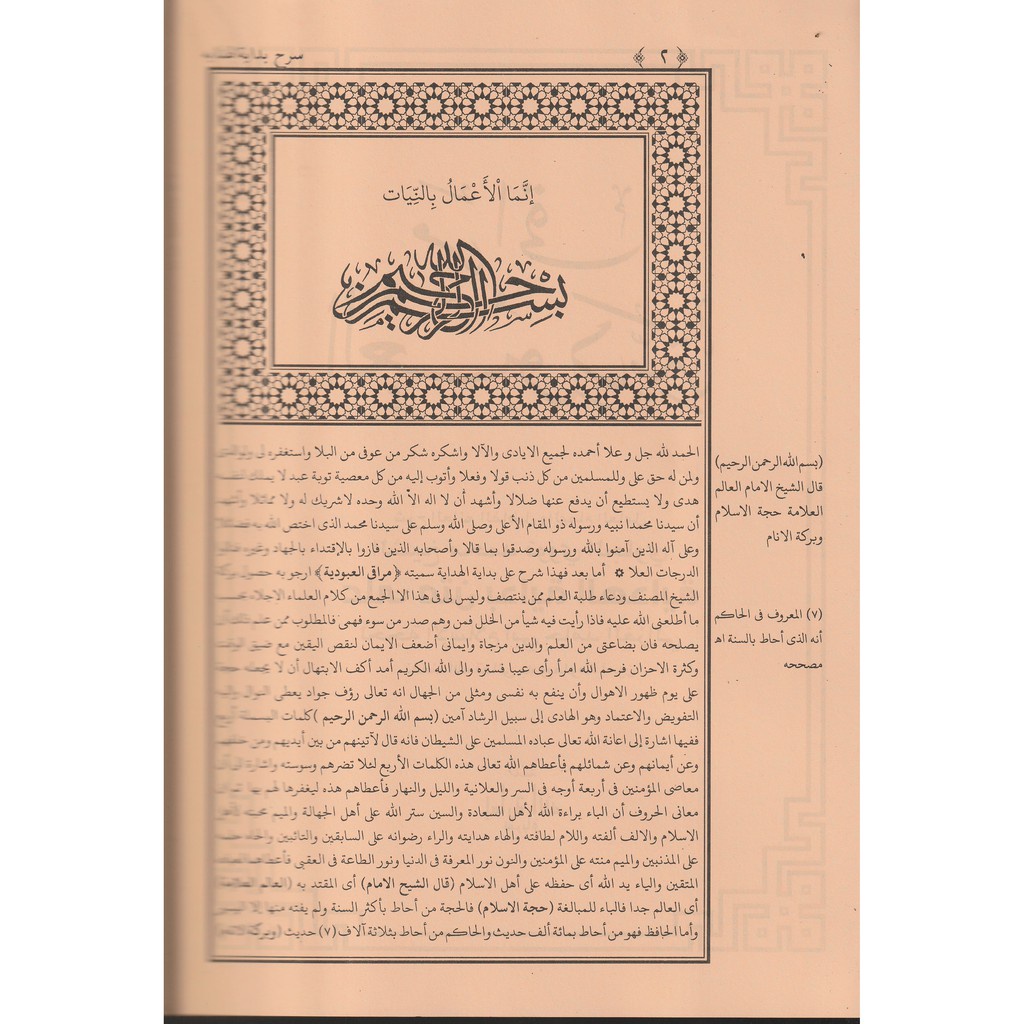 ﴿ ٢ ﴾
شرح بداية
إِنَّمَا الْأَعْمَالُ بِالنِّيَات
بسم الله الرحمن الرحيم
الحمد لله جل و علا أحمده لجميع الايادى والآلا واشكره شكر من عوفى من البلا واستغفره لى ولوالدى
ولمن له حق على وللمسلمين من كل ذنب قولا وفعلا وأتوب إليه من كل معصية توبة عبد لا يملك لنفسه
هدى ولا يستطيع أن يدفع عنها ضلالا وأشهد أن لا اله الاّ الله وحده لاشريك له ولا مماثلا وأشهد
أن سيدنا محمدا نبيه ورسوله ذو المقام الأعلى وصلى الله وسلم على سيدنا محمد الذى اختص الله به
وعلى آله الذين آمنوا بالله ورسوله وصدقوا بما قالا وأصحابه الذين فازوا بالإقتداء بالجهاد وغيره
الدرجات العلا ۞ أما بعد فهذا شرح على بداية الهداية سميته ﴿مراقى العبودية﴾ ارجو به حصول بركة
الشيخ المصنف ودعاء طلبة العلم ممن ينتصف وليس لى فى هذا الا الجمع من كلام العلماء الاجلاء
ما أطلعنى الله عليه فاذا رأيت فيه شيأ من الخلل فمن وهم صدر من سوء فهمى فالمطلوب ممن علم ذلك أن
يصلحه فان بضاعتى من العلم والدين مزجاة وايمانى أضعف الايمان لنقص اليقين مع ضيق الوقت
وكثرة الاحزان فرحم الله امرأ رأى عيبا فستره والى الله الكريم أمد أكف الابتهال أن لا يجعله حجة
على يوم ظهور الاهوال وأن ينفع به نفسى ومثلى من الجهال انه تعالى رؤف جواد يعطى النوال واليه
التفويض والاعتماد وهو الهادى إلى سبيل الرشاد آمين (بسم الله الرحمن الرحيم )كلمات البسملة أربع
ففيها اشارة إلى اعانة الله تعالى عباده المسلمين على الشيطان فانه قال لآتينهم من بين أيديهم ومن خلفهم
وعن أيمانهم وعن شمائلهم فأعطاهم الله تعالى هذه الكلمات الأربع لئلا تضرهم وسوسته واشارة الى أن
معاصى المؤمنين فى أربعة أوجه فى السر والعلانية والليل والنهار فأعطاهم هذه ليغفرها لهم بها
معانى الحروف أن الباء براءة الله لأهل السعادة والسين ستر الله على أهل الجهالة والميم محبته لأهل
الاسلام والالف ألفته واللام لطافته والهاء هدايته والراء رضوانه على السابقين والتائبين والحاء
على المذنبين والميم منته على المؤمنين والنون نور المعرفة فى الدنيا ونور الطاعة فى العقبى فأعطاهما
المتقين والياء يد الله أى حفظه على أهل الاسلام (قال الشيخ الامام) أى المقتد به (العالم العلامة)
أى العالم جدا فالباء للمبالغة (حجة الاسلام) فالحجة من أحاط بأكثر السنة ولم يفته منها إلا اليسير
وأما الحافظ فهو من أحاط بمائة ألف حديث والحاكم من أحاط بثلاثة آلاف (٧) حديث (وبركة الانام)
(بسم الله الرحمن الرحيم)
قال الشيخ الامام العالم
العلامة حجة الاسلام
وبركة الانام
(٧) المعروف فى الحاكم
أنه الذى أحاط بالسنة اه
مصححه